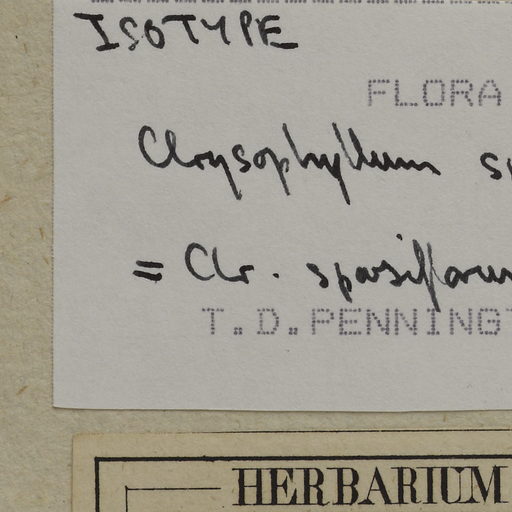 ISOTYPE
FLORA
Chrysophyllum
= Chr. sparsiflorum
T.D.PENNINGT
HERBARIUM